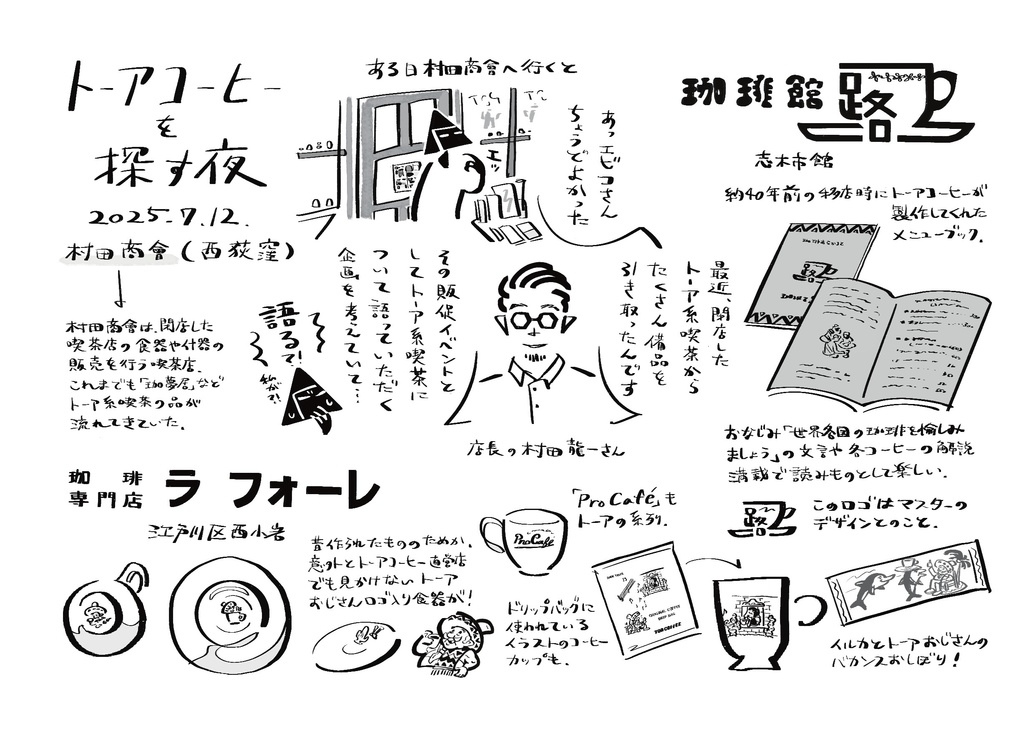 トーアコーヒー
を
探す夜
2025.7.12.
村田商會(西荻窪)
村田商會は、閉店した
喫茶店の食器や什器の
販売を行う喫茶店。
これまでも「珈夢居」など
トーア系喫茶の品が
流れてきていた。
ある日村田商會へ行くと
エッ
あっエビコさん
ちょうどよかった
最近、閉店した
トーア系喫茶から
たくさん備品を
引き取ったんです
その販促イベントと
してトーア系喫茶に
ついて語っていただく
企画を考えていて…
語るで!
私が?!
店長の村田龍一さん
珈琲館
路
志木市館
約40年前の移店時にトーアコーヒーが
製作してくれた
メニューブック。
路
路
おなじみ「世界各国の珈琲を愉しみ
ましょう」の文言や各コーヒーの解説
満載で読みものとして楽しい。
路
このロゴはマスターの
デザインとのこと。
珈琲
専門店
ラ フォーレ
江戸川区西小岩
昔作られたもののためか、
意外とトーアコーヒー直営店
でも見かけないトーア
おじさんロゴ入り食器が!
「Pro Café」も
トーアの系列。
ProCafé
ドリップバッグに
使われている
イラストのコーヒー
カップも。
TOACOFFEE
イルカとトーアおじさんの
バカンスおしぼり!